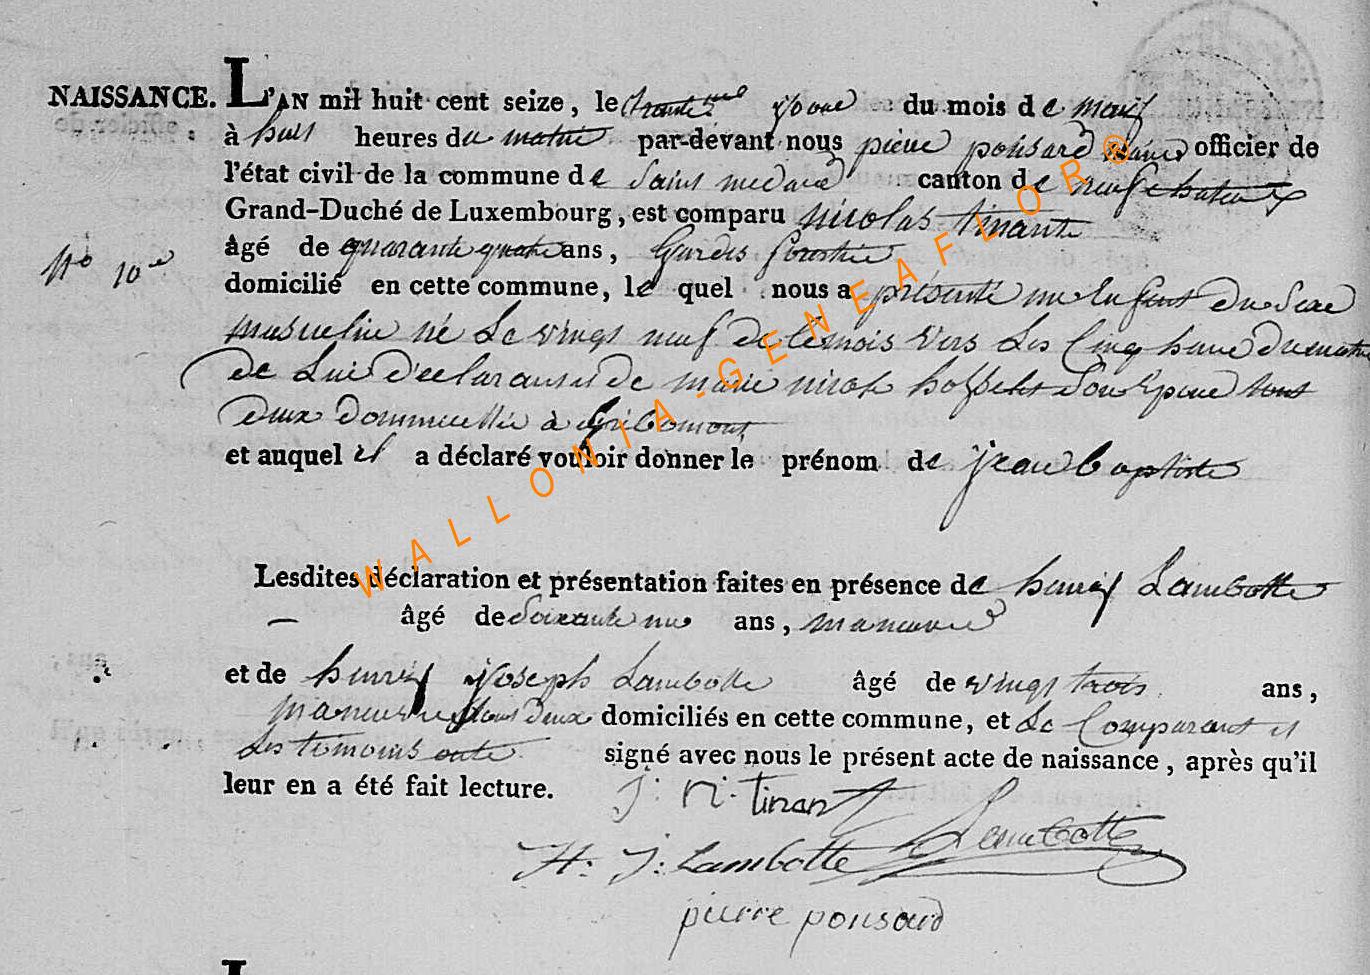 NAISSANCE. L'AN mil huit cent seize, le trantieme joure du mois de mars
à huis heures du matin par-devant nous piere ponsard maire officier de
l'état civil de la commune de Saint medard canton de neufchateaux
Grand-Duché de Luxembourg, est comparu nicolas tinante
âgé de quarante quatre ans, Gardes forestier
No 10
domicilié en cette commune, le quel nous a présenté un Enfant du Sexe
masculin né Le vingt neuf de Cemois vers Les Cinq heure du matin
de Lui Déclarant et de marie nicole Son Epouse tous
deux Dommecillié à Gribomont
et auquel il a déclaré vouloir donner le prénom de jean baptiste
Lesdites déclaration et présentation faites en présence de henrij Lambotte
âgé de Soixante un ans, maneuvre
et de henrij joseph Lambotte âgé de vingt trois ans,
maneuvre tous deux domiciliés en cette commune, et Le Comparant et
Les témoins onte signé avec nous le présent acte de naissance, après qu'il
leur en a été fait lecture.
J: N: Tinant
Lambotte
H: J: Lambotte
pierre ponsard
WALLONIA-GENEAFLOR®